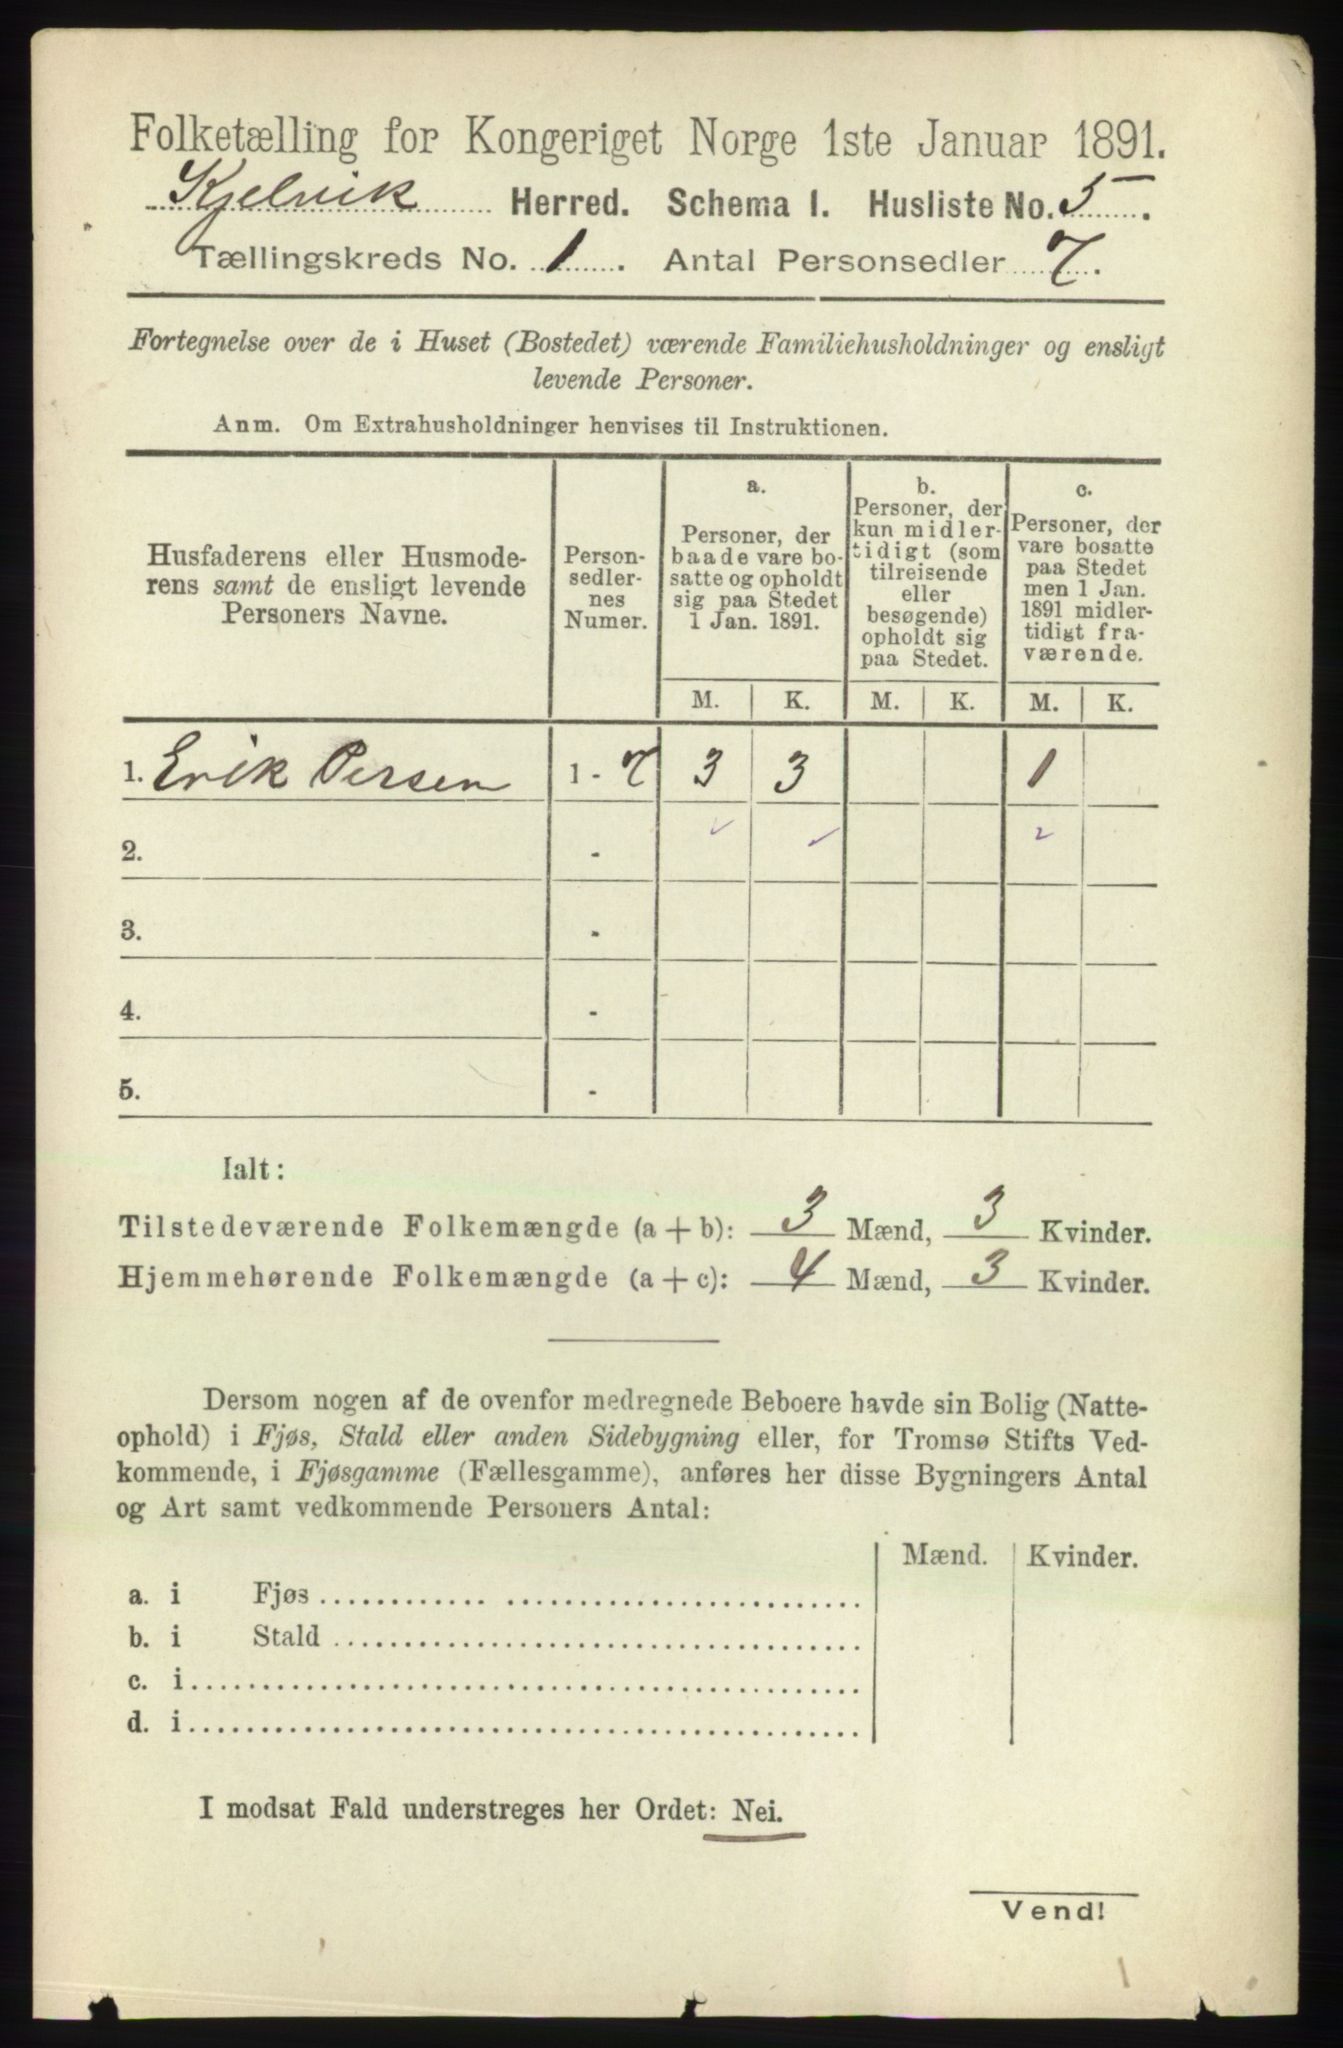 Folketælling for Kongeriget Norge 1ste Januar 1891.
Kjelvik Herred. Schema I. Husliste No. 5.
Tællingskreds No. 1. Antal Personsedler 7.
Fortegnelse over de i Huset (Bostedet) værende Familiehusholdninger og ensligt
levende Personer.
Anm. Om Extrahusholdninger henvises til Instruktionen.
Husfaderens eller Husmode-
rens samt de ensligt levende
Personers Navne.
Person-
sedler-
nes
Numer.
a.
Personer, der
baade vare bo-
satte og opholdt
sig paa Stedet
1 Jan. 1891.
b.
Personer, der
kun midler-
tidigt (som
tilreisende
eller
besøgende)
opholdt sig
paa Stedet.
c.
Personer, der
vare bosatte
paa Stedet
men 1 Jan.
1891 midler-
tidigt fra-
værende.
M. K. M. K. M. K.
1. Erik Persen 1 - 7 3 3 1
2. -
3. -
4. -
5. -
Ialt:
Tilstedeværende Folkemængde (a + b): 3 Mænd, 3 Kvinder.
Hjemmehørende Folkemængde (a + c): 4 Mænd, 3 Kvinder.
Dersom nogen af de ovenfor medregnede Beboere havde sin Bolig (Natte-
ophold) i Fjøs, Stald eller anden Sidebygning eller, for Tromsø Stifts Ved-
kommende, i Fjøsgamme (Fællesgamme), anføres her disse Bygningers Antal
og Art samt vedkommende Personers Antal:
Mænd. Kvinder.
a. i Fjøs
b. i Stald
c. i
d. i
I modsat Fald understreges her Ordet: Nei.
Vend!